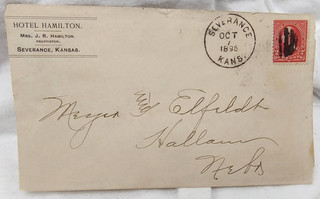 HOTEL HAMILTON.
MRS. J. R. HAMILTON,
PROPRIETOR.
SEVERANCE, KANSAS.
SEVERANCE
OCT
7
1896
KANS.
Meyer and Elfeldt
Hallam
Nebr